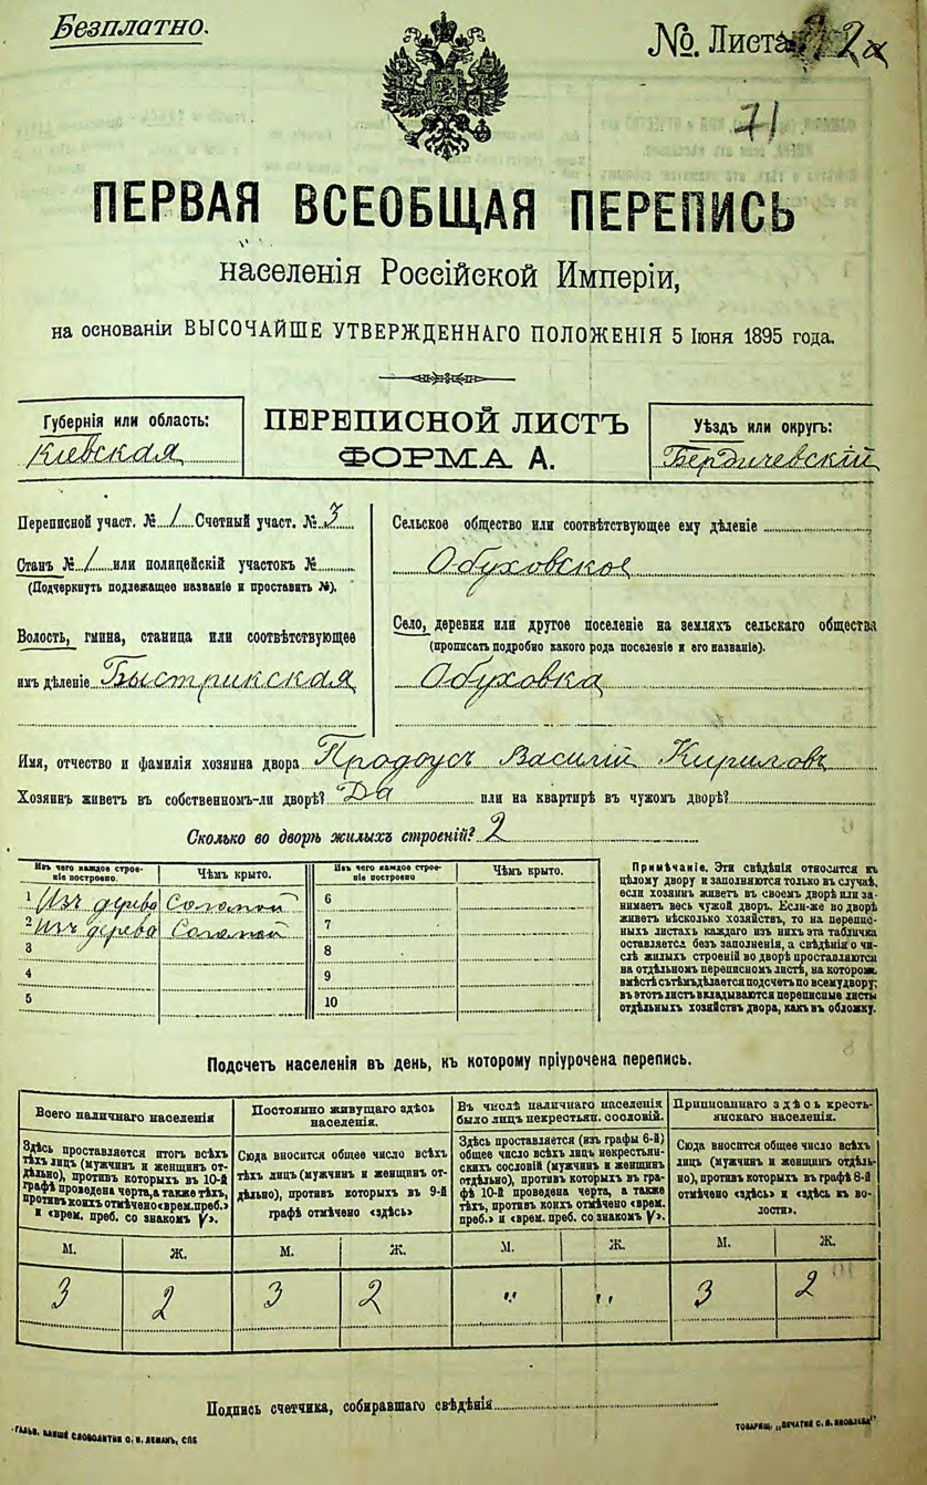 Безплатно.
№. Листа 2а
71
ПЕРВАЯ ВСЕОБЩАЯ ПЕРЕПИСЬ
населенія Россійской Имперіи,
на основаніи ВЫСОЧАЙШЕ УТВЕРЖДЕННАГО ПОЛОЖЕНІЯ 5 Іюня 1895 года.
Губернія или область:
Кіевская
ПЕРЕПИСНОЙ ЛИСТЪ
ФОРМА А.
Уѣздъ или округъ:
Бердичевскій
Переписной участ. № 1 Счетный участ. № 3
Станъ № 1 или полицейскій участокъ №
(Подчеркнуть подлежащее названіе и проставить №).
Волость, гмина, станица или соотвѣтствующее
имъ дѣленіе Быстрикская
Сельское общество или соотвѣтствующее ему дѣленіе
Обуховское
Село, деревня или другое поселеніе на земляхъ сельскаго общества
(прописать подробно какого рода поселеніе и его названіе).
Обуховка
Имя, отчество и фамилія хозяина двора Продоусъ Василій Кириловъ
Хозяинъ живетъ въ собственномъ-ли дворѣ? Да или на квартирѣ въ чужомъ дворѣ?
Сколько во дворѣ жилыхъ строеній? 2
Изъ чего каждое строе-
ніе построено.
Чѣмъ крыто.
1 Изъ дерева Соломой
2 Изъ дерева Соломой
3
4
5
Изъ чего каждое строе-
ніе построено
Чѣмъ крыто.
6
7
8
9
10
Примѣчаніе. Эти свѣдѣнія относятся къ
цѣлому двору и заполняются только въ случаѣ,
если хозяинъ живетъ въ своемъ дворѣ или за-
нимаетъ весь чужой дворъ. Если-же во дворѣ
живетъ нѣсколько хозяйствъ, то на перепис-
ныхъ листахъ каждаго изъ нихъ эта табличка
оставляется безъ заполненія, а свѣдѣнія о чи-
слѣ жилыхъ строеній во дворѣ проставляются
на отдѣльномъ переписномъ листѣ, на которомъ
вмѣстѣ съ тѣмъ дѣлается подсчетъ по всему двору;
въ этотъ листъ вкладываются переписные листы
отдѣльныхъ хозяйствъ двора, какъ въ обложку.
Подсчетъ населенія въ день, къ которому пріурочена перепись.
Всего наличнаго населенія
Здѣсь проставляется итогъ всѣхъ
тѣхъ лицъ (мужчинъ и женщинъ от-
дѣльно), противъ которыхъ въ 10-й
графѣ проведена черта, а также тѣхъ,
противъ коихъ отмѣчено «врем. преб.»
и «врем. преб. со знакомъ V».
М. Ж.
3 2
Постоянно живущаго здѣсь
населенія.
Сюда вносится общее число всѣхъ
тѣхъ лицъ (мужчинъ и женщинъ от-
дѣльно), противъ которыхъ въ 9-й
графѣ отмѣчено «здѣсь»
М. Ж.
3 2
Въ числѣ наличнаго населенія
было лицъ некрестьян. сословій.
Здѣсь проставляется (изъ графы 6-й)
общее число всѣхъ лицъ некрестьян-
скихъ сословій (мужчинъ и женщинъ
отдѣльно), противъ которыхъ въ гра-
фѣ 10-й проведена черта, а также
тѣхъ, противъ коихъ отмѣчено «врем.
преб.» и «врем. преб. со знакомъ V».
М. Ж.
" "
Приписаннаго здѣсь кресть-
янскаго населенія.
Сюда вносится общее число всѣхъ
лицъ (мужчинъ и женщинъ отдѣль-
но), противъ которыхъ въ графѣ 8-й
отмѣчено «здѣсь» и «здѣсь къ во-
лости».
М. Ж.
3 2
Подпись счетчика, собиравшаго свѣдѣнія
СЛОВОЛИТНИ О. И. ЛЕМАНЪ, СПБ
ТОВАРИЩ. „ПЕЧАТНЯ С. П. ЯКОВЛЕВА"